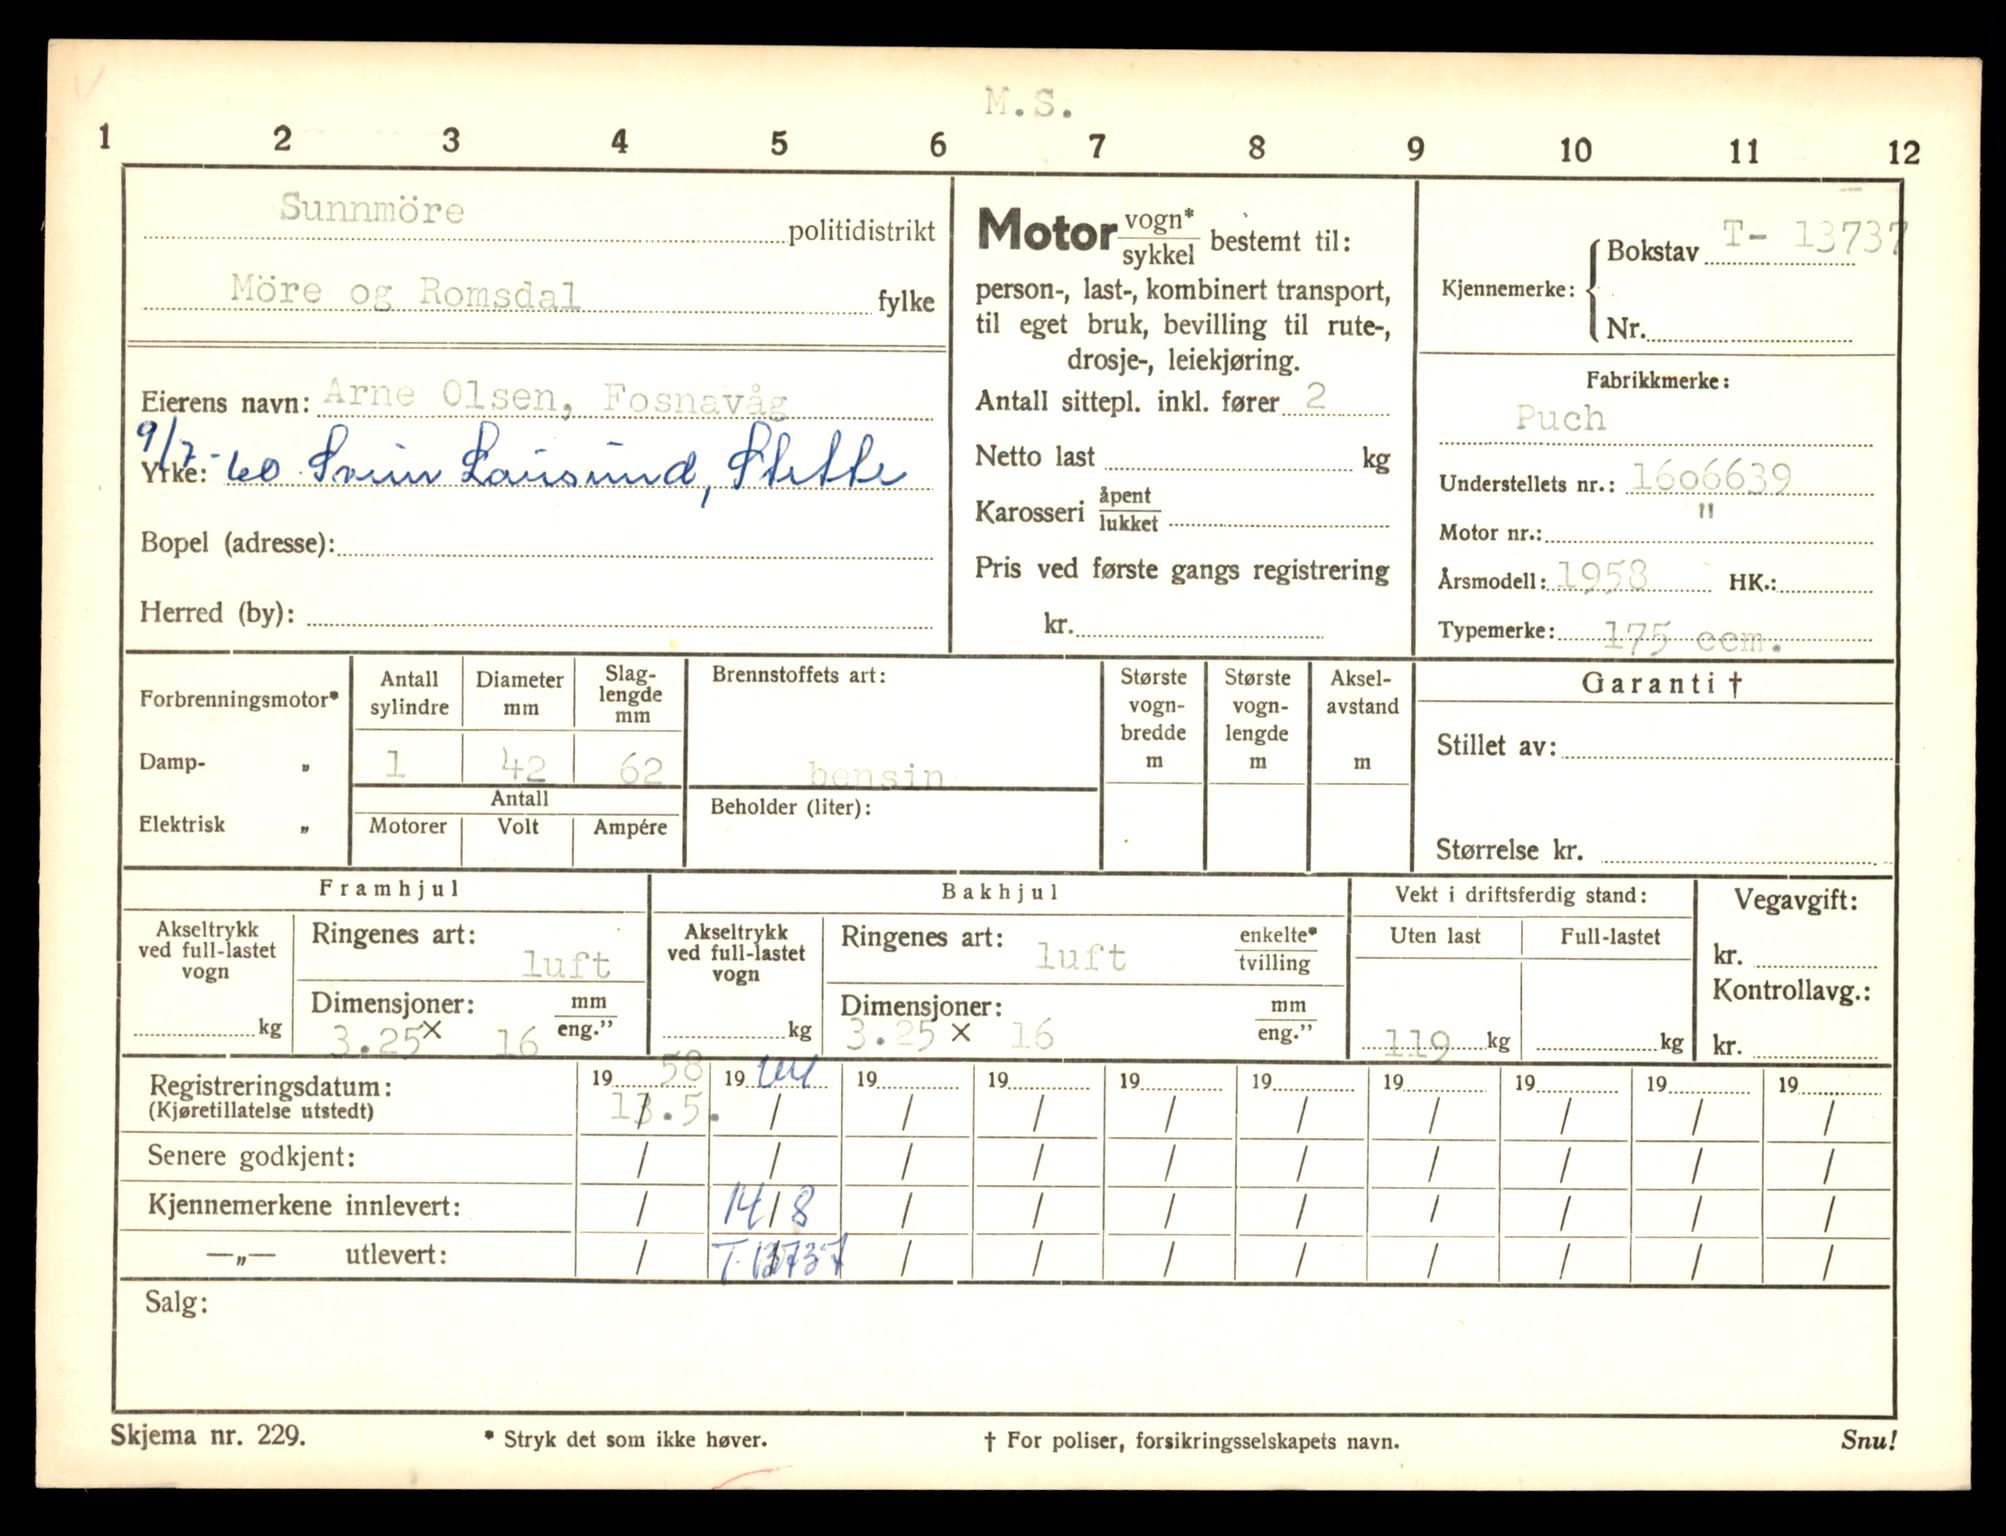 M.S.
1 2 3 4 5 6 7 8 9 10 11 12
Sunnmöre politidistrikt
Möre og Romsdal fylke
Eierens navn: Arne Olsen, Fosnavåg
9/7-60 Svein Laursund, Stette
Yrke:
Bopel (adresse):
Herred (by):
Motor vogn* sykkel bestemt til:
person-, last-, kombinert transport,
til eget bruk, bevilling til rute-,
drosje-, leiekjøring.
Antall sittepl. inkl. fører 2
Netto last kg
Karosseri åpent lukket
Pris ved første gangs registrering
kr.
Kjennemerke: Bokstav T- 13737
Nr.
Fabrikkmerke:
Puch
Understellets nr.: 1606639
Motor nr.: "
Årsmodell: 1958 HK.:
Typemerke: 175 ccm.
Forbrenningsmotor*
Damp- „
Elektrisk „
Antall sylindre
Diameter mm
Slag-
lengde
mm
1 42 62
Antall
Motorer Volt Ampére
Brennstoffets art:
bensin
Beholder (liter):
Største
vogn-
bredde
m
Største
vogn-
lengde
m
Aksel-
avstand
m
Garanti †
Stillet av:
Størrelse kr.
Framhjul
Akseltrykk
ved full-lastet
vogn
kg
Ringenes art:
luft
Dimensjoner: mm eng.”
3.25 × 16
Bakhjul
Akseltrykk
ved full-lastet
vogn
kg
Ringenes art: luft enkelte* tvilling
Dimensjoner: mm eng.”
3.25 × 16
Vekt i driftsferdig stand:
Uten last Full-lastet
119 kg kg
Vegavgift:
kr.
Kontrollavg.:
kr.
Registreringsdatum: 19 58 19 64 19 19 19 19 19 19 19 19
(Kjøretillatelse utstedt) 13.5. / / / / / / / / /
Senere godkjent: / / / / / / / / / /
Kjennemerkene innlevert: / 14/8 / / / / / / / /
—„— utlevert: / T-13737 / / / / / / / /
Salg:
Skjema nr. 229. * Stryk det som ikke høver. † For poliser, forsikringsselskapets navn. Snu!